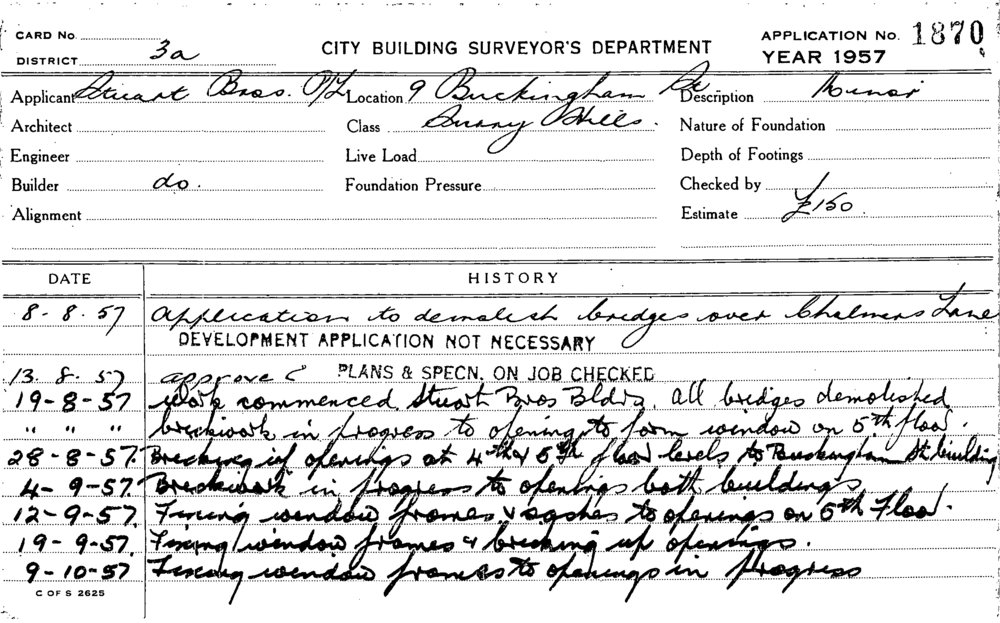 CARD No.
DISTRICT 3a
CITY BUILDING SURVEYOR'S DEPARTMENT
APPLICATION No. 1870
YEAR 1957
Applicant Stuart Bros. P/L Location 9 Buckingham St Description Minor
Architect Class Surry Hills. Nature of Foundation
Engineer Live Load Depth of Footings
Builder do. Foundation Pressure Checked by
Alignment Estimate £150
DATE HISTORY
8-8-57 Application to demolish bridges over Chalmers Lane
DEVELOPMENT APPLICATION NOT NECESSARY
13.8.57 approved PLANS & SPECN. ON JOB CHECKED
19-8-57 Work commenced. Stuart Bros Bldrs. All bridges demolished
" " " brickwork in progress to openings to form window on 5th floor.
28-8-57. Bricking up openings at 4th & 5th floor levels to Buckingham St. building
4-9-57. Brickwork in progress to openings both buildings
12-9-57. Fixing window frames & sashes to openings on 5th Floor.
19-9-57. Fixing window frames & bricking up openings.
9-10-57 Fixing window frames to openings in progress
C OF S 2625